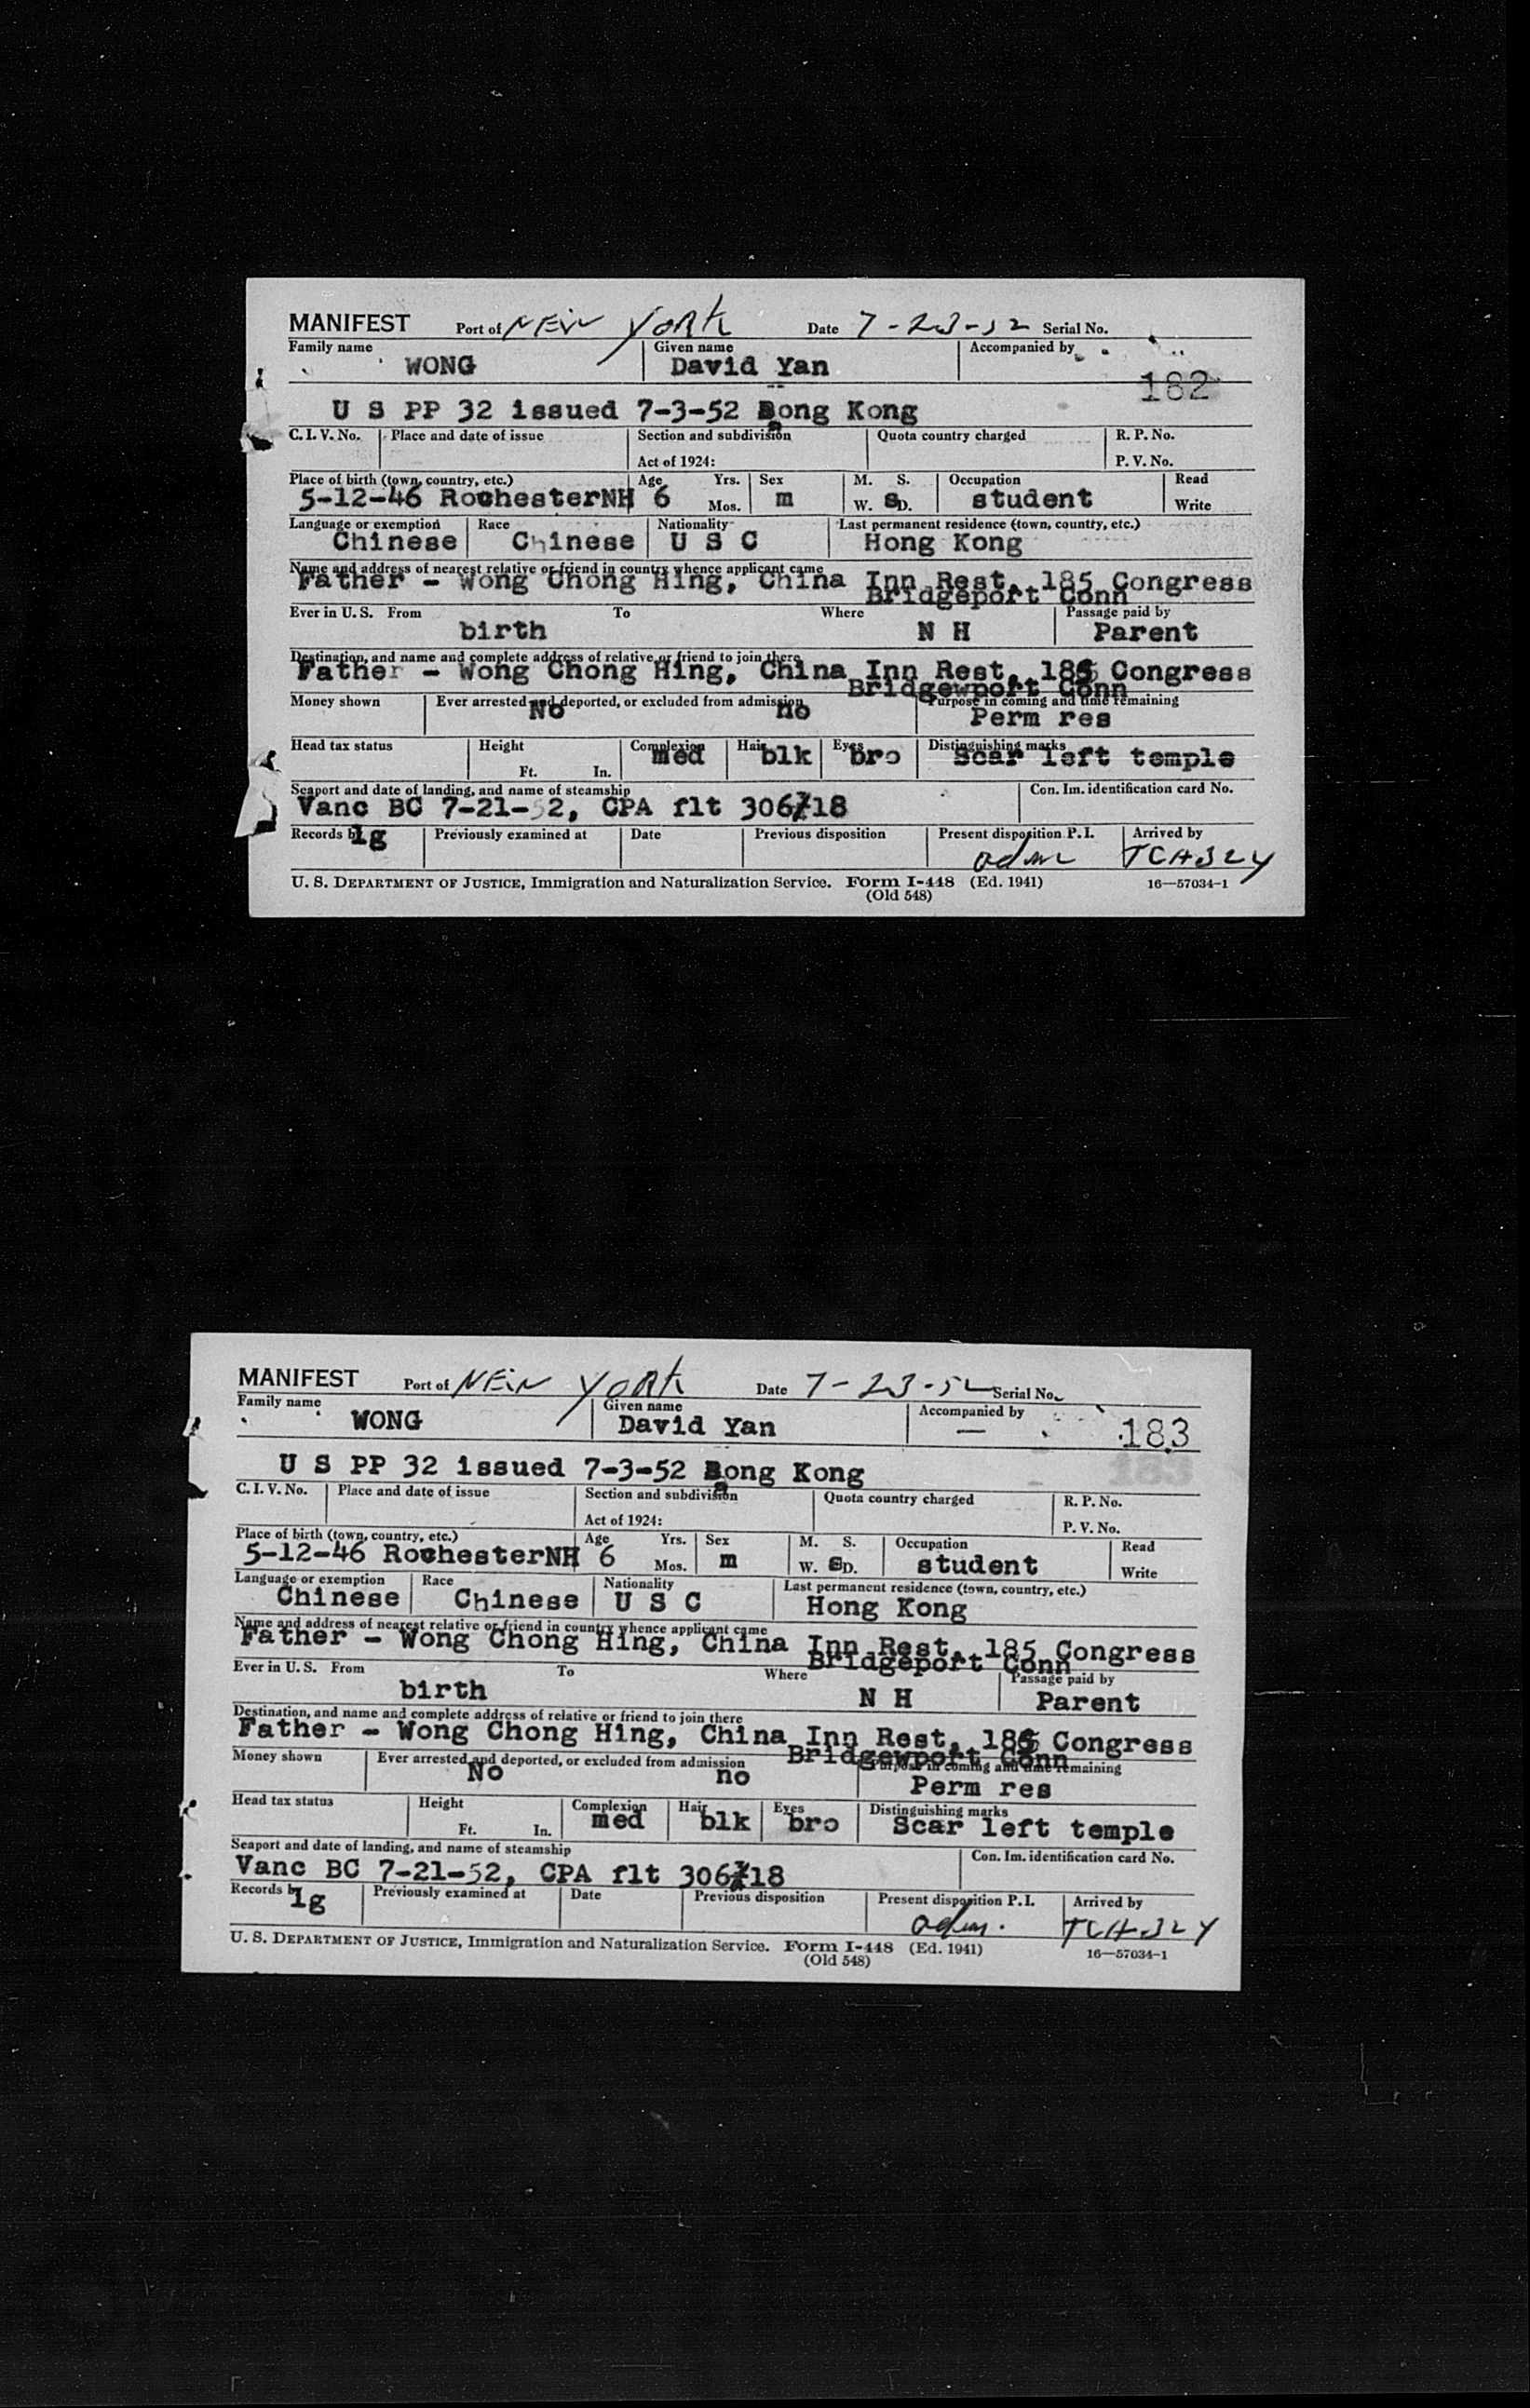 MANIFEST Port of NEW YORK Date 7-23-52 Serial No.
Family name WONG Given name David Yan Accompanied by
182
U S PP 32 issued 7-3-52 Hong Kong
C. I. V. No. Place and date of issue Section and subdivision Quota country charged R. P. No.
Act of 1924: P. V. No.
Place of birth (town, country, etc.) Age Yrs. Sex M. S. Occupation Read
5-12-46 RochesterNH 6 Mos. m W. s D. student Write
Language or exemption Race Nationality Last permanent residence (town, country, etc.)
Chinese Chinese U S C Hong Kong
Name and address of nearest relative or friend in country whence applicant came
Father - Wong Chong Hing, China Inn Rest. 185 Congress
Bridgeport Conn
Ever in U. S. From To Where Passage paid by
birth N H Parent
Destination, and name and complete address of relative or friend to join there
Father - Wong Chong Hing, China Inn Rest. 185 Congress
Bridgewport Conn
Money shown Ever arrested and deported, or excluded from admission Purpose in coming and time remaining
No no Perm res
Head tax status Height Complexion Hair Eyes Distinguishing marks
Ft. In. med blk bro Scar left temple
Seaport and date of landing, and name of steamship Con. Im. identification card No.
Vanc BC 7-21-52, CPA flt 306/18
Records by Previously examined at Date Previous disposition Present disposition P. I. Arrived by
lg adm TCA 324
U. S. DEPARTMENT OF JUSTICE, Immigration and Naturalization Service. Form I-448 (Ed. 1941) 16—57034-1
(Old 548)
MANIFEST Port of NEW YORK Date 7-23-52 Serial No.
Family name WONG Given name David Yan Accompanied by —
183
U S PP 32 issued 7-3-52 Hong Kong
C. I. V. No. Place and date of issue Section and subdivision Quota country charged R. P. No.
Act of 1924: P. V. No.
Place of birth (town, country, etc.) Age Yrs. Sex M. S. Occupation Read
5-12-46 RochesterNH 6 Mos. m W. s D. student Write
Language or exemption Race Nationality Last permanent residence (town, country, etc.)
Chinese Chinese U S C Hong Kong
Name and address of nearest relative or friend in country whence applicant came
Father - Wong Chong Hing, China Inn Rest. 185 Congress
Bridgeport Conn
Ever in U. S. From To Where Passage paid by
birth N H Parent
Destination, and name and complete address of relative or friend to join there
Father - Wong Chong Hing, China Inn Rest. 185 Congress
Bridgewport Conn
Money shown Ever arrested and deported, or excluded from admission Purpose in coming and time remaining
No no Perm res
Head tax status Height Complexion Hair Eyes Distinguishing marks
Ft. In. med blk bro Scar left temple
Seaport and date of landing, and name of steamship Con. Im. identification card No.
Vanc BC 7-21-52, CPA flt 306/18
Records by Previously examined at Date Previous disposition Present disposition P. I. Arrived by
lg adm. TCA 324
U. S. DEPARTMENT OF JUSTICE, Immigration and Naturalization Service. Form I-448 (Ed. 1941) 16—57034-1
(Old 548)